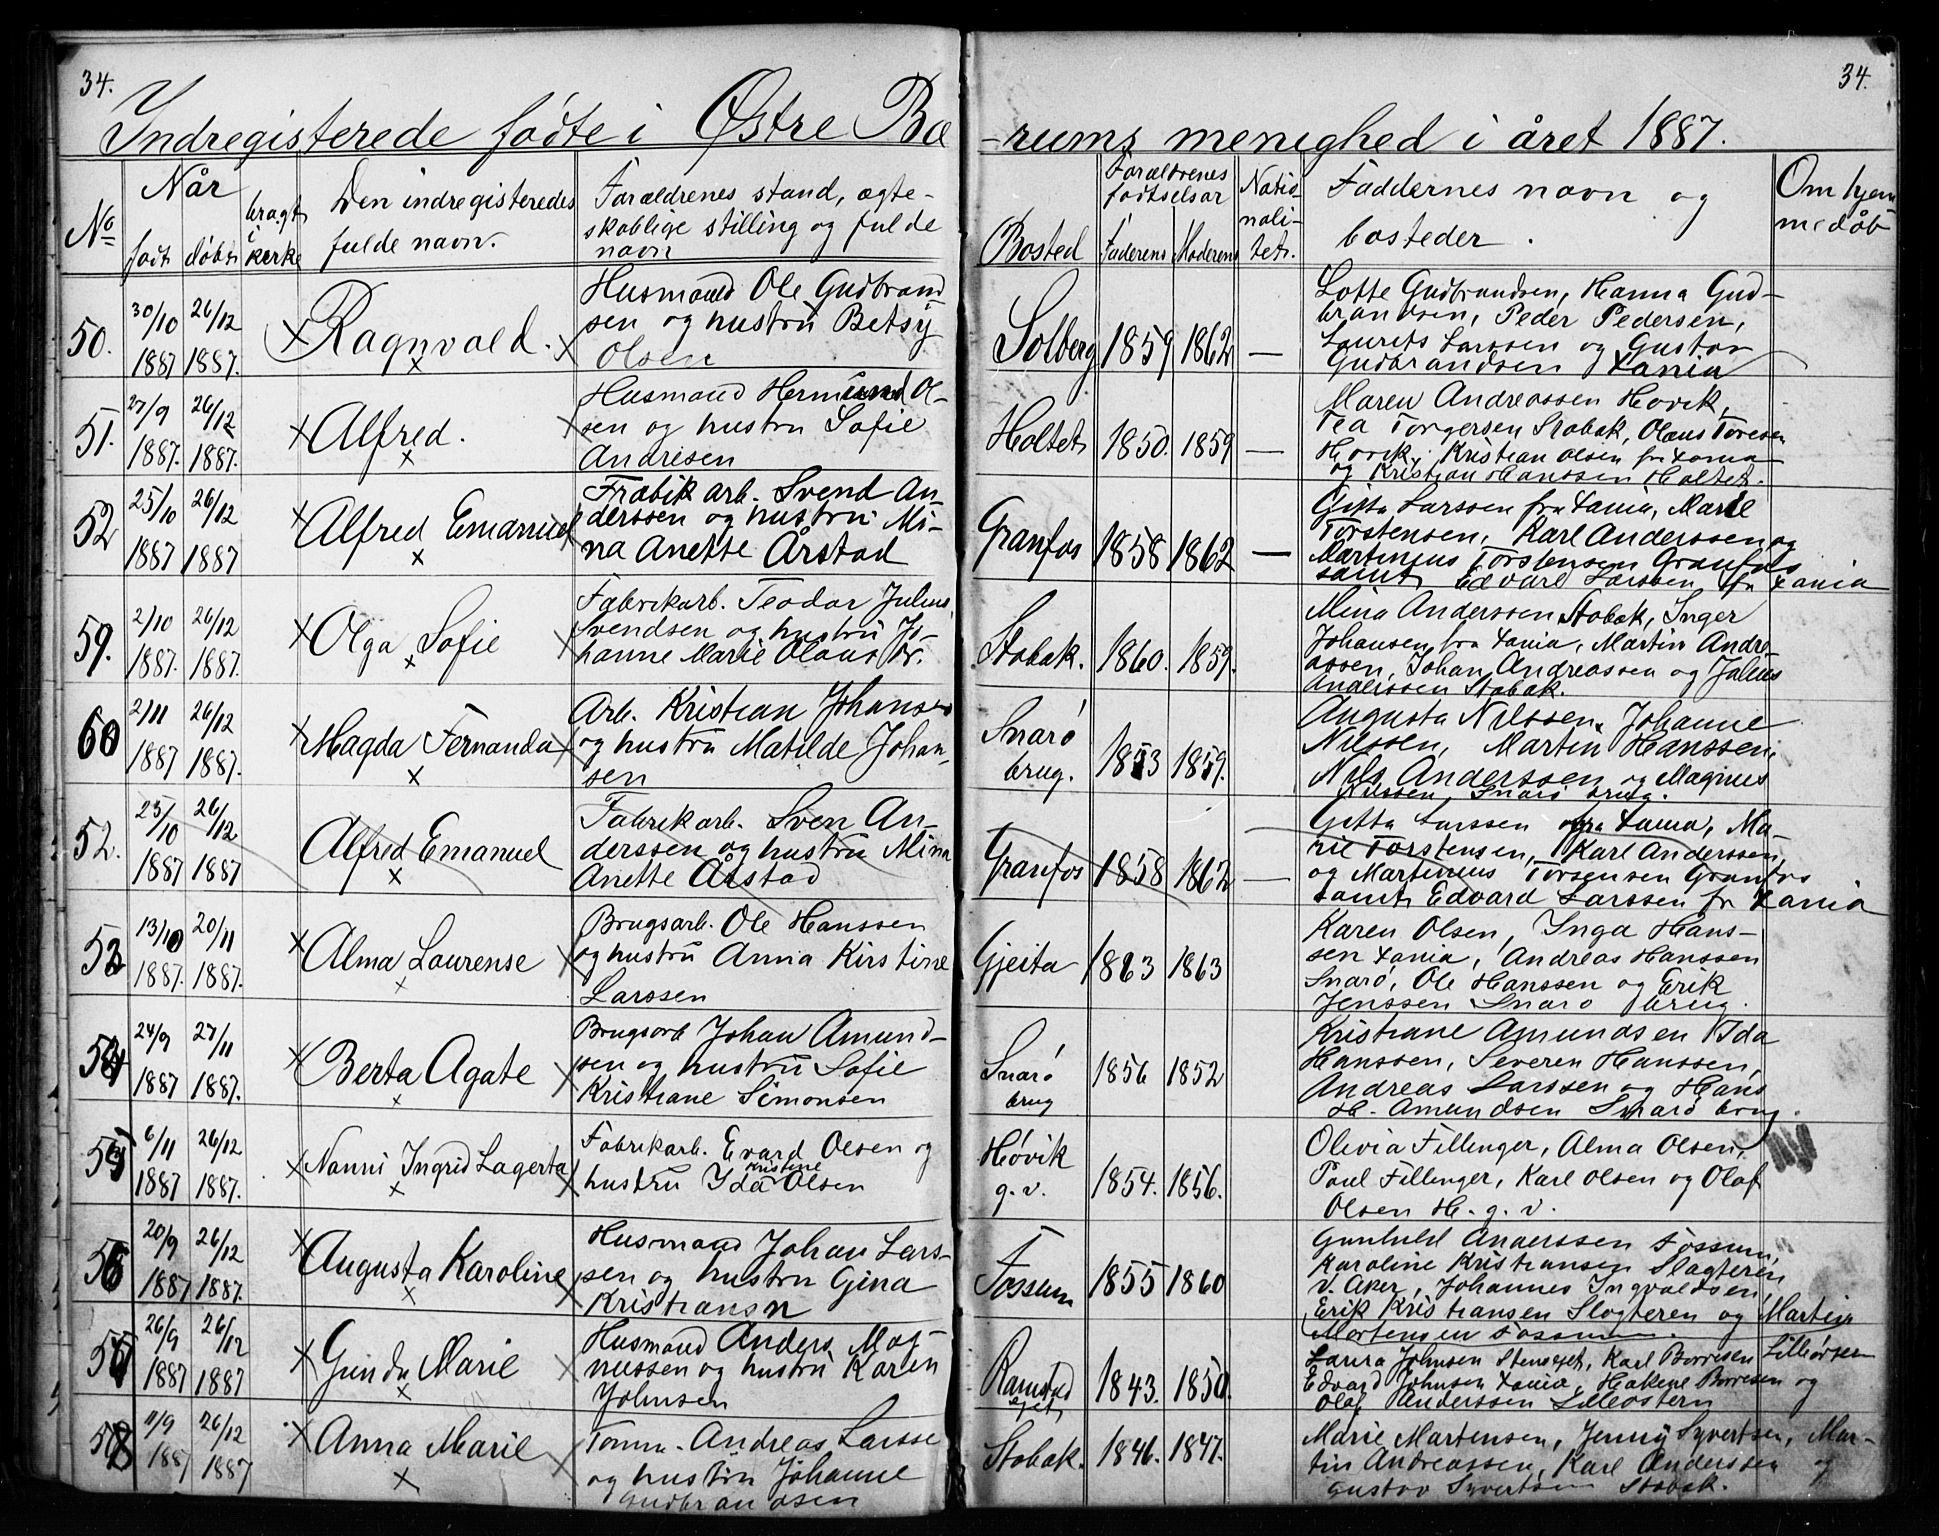 34.
34.
Indregisterede fødte i Østre Bæ-rums menighed i året 1887.
No
Når
født
døbt
bragt i kirke
Den indregisteredes
fulde navn.
Forældrenes stand, ægte-
skablige stilling og fulde
navn
Bosted
Forældrenes
fødselsår
Faderens
Moderens
Natio-
nali-
tet.
Faddernes navn og
bosteder.
Om hjem
medøb
50.
30/10 26/12
1887 1887.
Ragnvald.
Husmand Ole Gudbrand
sen og hustru Betsy
Olsen
Solberg 1859 1862 —
Lotte Gudbrandsen, Hanna Gud-
brandsen, Peder Pedersen,
Laurits Larssen og Gustav
Gudbrandsen Xania
51.
27/9 26/12
1887. 1887.
Alfred.
Husmand Hermund Ol-
sen og hustru Sofie
Andrisen
Holtet 1850. 1859 —
Maren Andreassen Høvik,
Tea Torgersen Stabak, Olaus Toresen
Høvik, Kristian Olsen fra Xania
og Kristian Hanssen Holtet.
52
25/10 26/12
1887 1887
Alfred Emanuel
Frabik arb. Svend An-
derssen og hustru Mi-
na Anette Årstad
Granfos 1858 1862 —
Gitta Larssen fra Xania, Marie
Torstensen, Karl Anderssen og
Martinius Torstensen Granfos
samt Edvard Larssen fr Xania
59.
2/10 26/12
1887. 1887.
Olga Sofie
Fabrikarb. Teodor Julius
Svendsen og hustru Jo-
hanne Marie Olausdr.
Stabak. 1860. 1859.
Mina Anderssen Stabak, Inger
Johansen fra Xania, Martin Andre-
assen, Johan Andreassen og Julius
Andersen Stabak.
60
2/11 26/12
1887 1887.
Magda Fernanda
Arb. Kristian Johansen
og hustru Matilde Johan-
sen
Snarø
brug. 1853 1859.
Augusta Nilssen, Johanne
Nilssen, Martin Hanssen,
Nils Anderssen og Magnus
Nilssen, Snarø brug.
52.
25/10 26/12
1887 1887
Alfred Emanuel
Fabrikarb. Sven An-
derssen og hustru Mina
Anette Årstad
Granfos 1858 1862 —
Gitta Larssen fra Xania, Ma-
rie Torstensen, Karl Anderssen,
og Martinius Torsensen Granfos
samt Edvard Larssen fr Xania
53
13/10 20/11
1887. 1887.
Alma Laurense
Brugsarb. Ole Hanssen
og hustru Anna Kirstine
Larssen
Gjeita 1863 1863
Karen Olsen, Inga Hans-
sen Xania, Andreas Hanssen
Snarø, Ole Hanssen og Erik
Jenssen Snarø brug.
54
24/9 27/11
1887 1887.
Berta Agate
Brugsarb Johan Amund-
sen og hustru Sofie
Kristiane Simonsen
Snarø
brug 1856 1852
Kristiane Amundsen Ida
Hanssen, Severen Hanssen,
Andreas Larssen og Hans
H. Amundsen Snarø brug.
55
6/11 26/12
1887 1887.
Nanni Ingrid Lagerta
Fabrikarb. Evard Olsen og
hustru Ida Kristine Olsen
Høvik
g.v. 1854. 1856.
Olivia Fillinger, Alma Olsen,
Paul Fillinger, Karl Olsen og Olaf
Olsen H. g. v.
56
20/9 26/12
1887 1887.
Augusta Karoline
Husmand Johan Lars-
sen og hustru Gina
Kristiansn
Fossum 1855 1860
Gunhild Anderssen Fossum,
Karoline Kristiansen Slagteren
V. Aker, Johannes Ingvaldsen,
Erik Kristiansen Slagteren og Martin
Mortensen Fossum.
57
26/9 26/12
1887 1887
Gunda Marie
Husmand Anders Mag-
nussen og hustru Karen
Johnsen
Ramstad
ejet 1843. 1850.
Laura Johnsen Stensejet, Karl Borresen Lilleøstern
Edvard Johnsen Xania, Hakene Borresen og
Olaf Anderssen Lilleøstern
58
11/9 26/12
1887 1887
Anna Marie
Tømm. Andreas Larsse
og hustru Johanne
Gudbrandsen
Stabak. 1846. 1847.
Marie Martensen, Jenny Syvertsen, Mar-
tin Andreassen, Karl Anderssen og
Gustav Syvertsen Stabak.